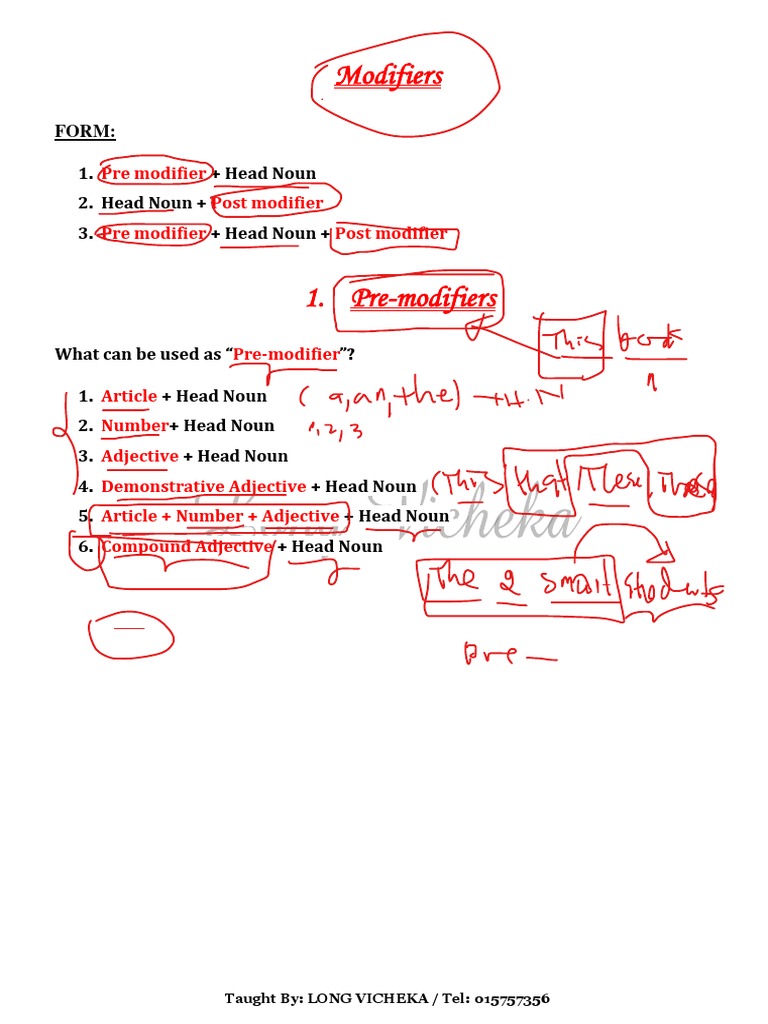 Modifiers
FORM:
1. Pre modifier + Head Noun
2. Head Noun + Post modifier
3. Pre modifier + Head Noun + Post modifier
1. Pre-modifiers
This book
n
What can be used as “Pre-modifier”?
1. Article + Head Noun (a, an, the) → H.N
2. Number+ Head Noun 1, 2, 3
3. Adjective + Head Noun
4. Demonstrative Adjective + Head Noun (This that These Those
5. Article + Number + Adjective + Head Noun
6. Compound Adjective + Head Noun
Vicheka
The 2 smart students
pre
Taught By: LONG VICHEKA / Tel: 015757356